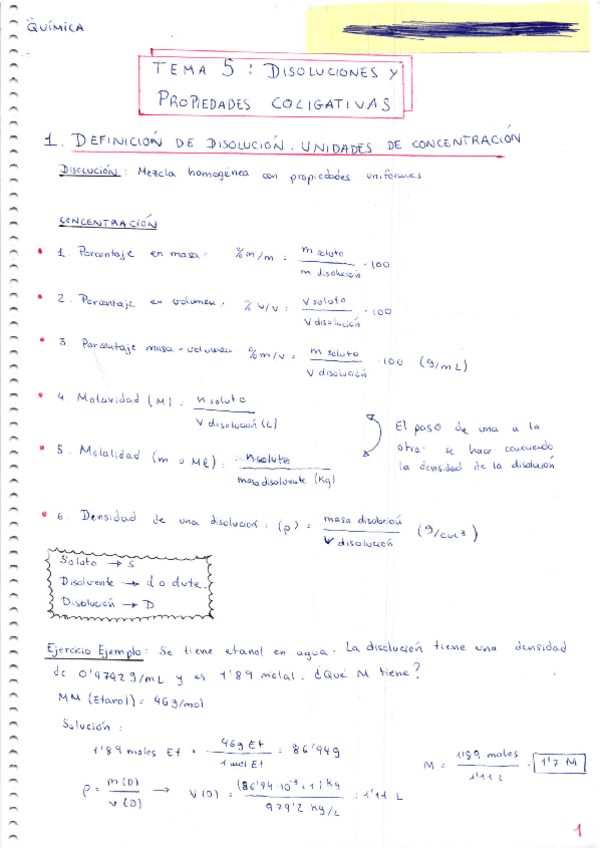 QUÍMICA
TEMA 5: DISOLUCIONES Y
PROPIEDADES COLIGATIVAS
1. DEFINICIÓN DE DISOLUCIÓN. UNIDADES DE CONCENTRACIÓN
DISOLUCIÓN: Mezcla homogénea con propiedades uniformes
CONCENTRACIÓN
1. Porcentaje en masa: %m/m = m soluto / m disolución · 100
2. Porcentaje en volumen: % v/v = v soluto / v disolución · 100
3. Porcentaje masa-volumen %m/v = m soluto / v disolución · 100 (g/mL)
4 Molaridad (M): n soluto / v disolución (L)
El paso de una a la
otra se hace conociendo
la densidad de la disolución
5. Molalidad (m o Ml): n soluto / masa disolvente (Kg)
6 Densidad de una disolución: (ρ) = masa disolución / v disolución (g/cm³)
Soluto → S
Disolvente → d o dvte.
Disolución → D
Ejercicio Ejemplo: Se tiene etanol en agua. La disolución tiene una densidad
de 0'9792 g/mL y es 1'89 molal. ¿Qué M tiene?
MM (Etanol) = 46g/mol
Solución:
1'89 moles Et · 46g Et / 1 mol Et = 86'94g
M = 1'89 moles / 1'11 L = 1'7 M
ρ = m(D) / v(D) → V(D) = (86'94·10⁻³+1) kg / 979'2 Kg/L = 1'11 L
1